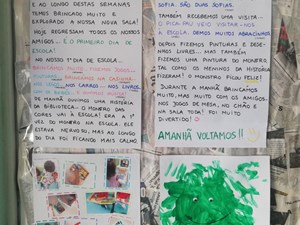 E AO LONGO DESTAS SEMANAS
TEMOS BRINCADO MUITO E
EXPLORADO A NOSSA NOVA SALA!
HOJE REGRESSAM TODOS OS NOSSOS
AMIGOS... É O PRIMEIRO DIA DE
ESCOLA!
NO NOSSO 1º DIA DE ESCOLA...
NA CASINHA
NOS CARROS... NOS LIVROS
DE MANHÃ OUVIMOS UMA HISTÓRIA
DA BIBLIOTECA: O MONSTRO DAS
CORES VAI À ESCOLA! ERA A 1ª
VEZ DO MONSTRO NA ESCOLA. ELE
ESTAVA NERVOSO, MAS AO LONGO
DO DIA FOI FICANDO MAIS CALMO
SOFIA. SÃO DUAS SOFIAS.
TAMBÉM RECEBEMOS UMA VISITA...
O PICA PAU VEIO VISITAR-NOS
À ESCOLA. DEMOS MUITOS ABRACINHOS
DEPOIS FIZEMOS PINTURAS E DESE-
NHOS LIVRES... MAS TAMBÉM
FIZEMOS UMA PINTURA DO MONSTRO
TAL COMO OS MENINOS DA HISTÓRIA
FIZERAM! O MONSTRO FICOU FELIZ!
DURANTE A MANHÃ BRINCÁMOS
MUITO, MAS MUITO COM OS AMIGOS:
NOS JOGOS DE MESA, NO CHÃO E
NA SALA TODA! FOI MUITO
DIVERTIDO!
AMANHÃ VOLTAMOS!!